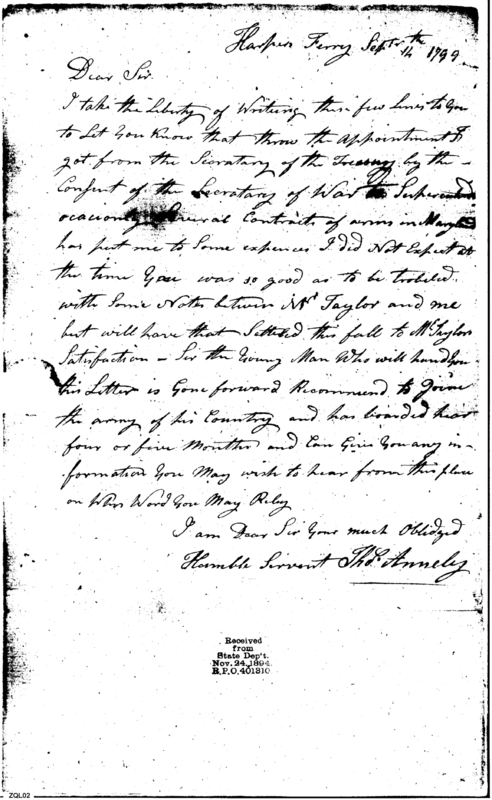 Harpers Ferry Septr 14th 1799
Dear Sir
I take the Liberty of Writing these few Lines to You
to Let You Know that throw the Appointment I
got from the Secratary of the Treasury by the
Consent of the Secratary of War to Superintend
ocacionly Several Contracts of arms in
has put me to Some expences I did Not Expect at
the time You was so good as to be trobeled
with Some Notes betwen Mr Taylor and me
but will have that Setteled this fall to Mr Taylors
Satisfaction – Sir the Young Man Who will hand You
this Letter is Gone forward Recommend to Joine
the army of his Country and has boarded hear
four or five Months and Can Give You any in-
formation You May wish to hear from this place
on Whos Word You May Reley
I am Dear Sir Your much Oblidged
Humble Servent Thos. Annely
Received
from
State Dep't.
Nov. 24, 1894.
R.P.O. 401310
ZQL02